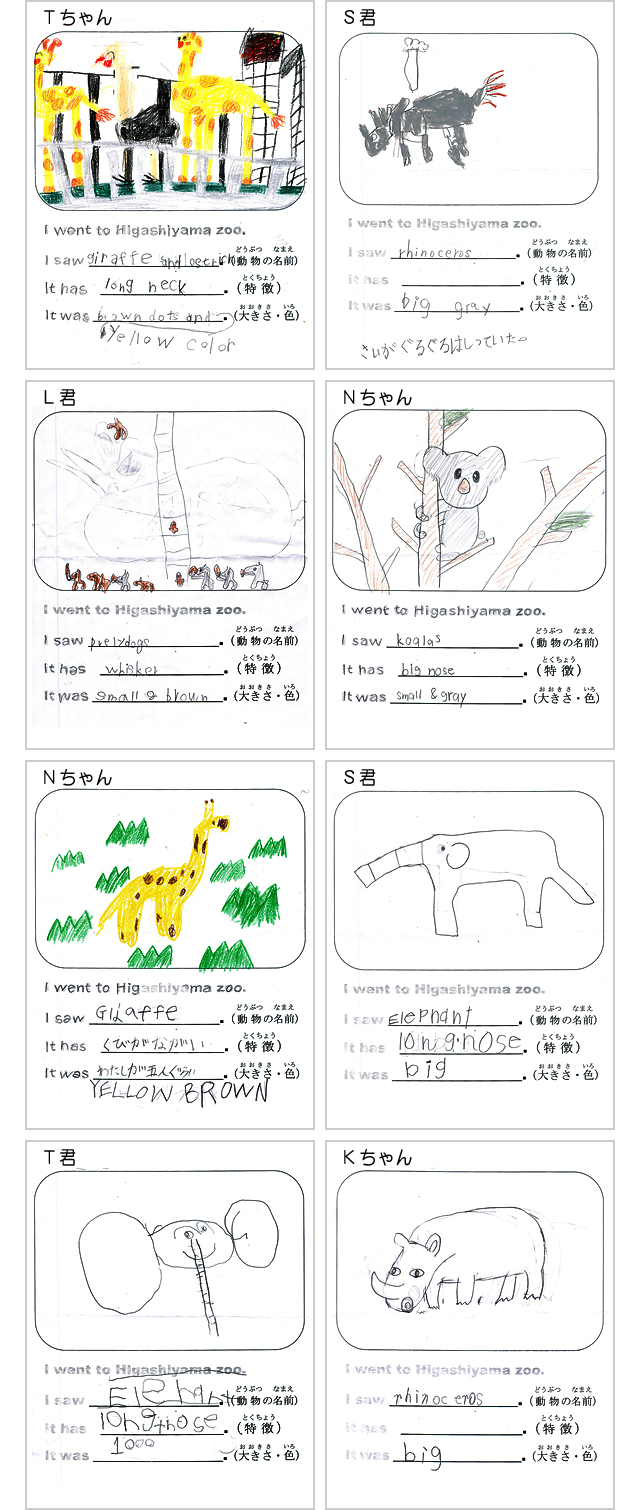 Tちゃん
I went to Higashiyama zoo.
どうぶつ なまえ
I saw giraffe and oetrich.(動物の名前)
とくちょう
It has long neck.(特徴)
おおきさ いろ
It was brown dots and.(大きさ・色)
Yellow color
S君
I went to Higashiyama zoo.
どうぶつ なまえ
I saw rhinoceros.(動物の名前)
とくちょう
It has .(特徴)
おおきさ いろ
It was big gray.(大きさ・色)
さいがぐるぐるはしっていた。
L君
I went to Higashiyama zoo.
どうぶつ なまえ
I saw prelydogs.(動物の名前)
とくちょう
It has whisker.(特徴)
おおきさ いろ
It was small & brown.(大きさ・色)
Nちゃん
I went to Higashiyama zoo.
どうぶつ なまえ
I saw koalas.(動物の名前)
とくちょう
It has big nose.(特徴)
おおきさ いろ
It was small & gray.(大きさ・色)
Nちゃん
I went to Higashiyama zoo.
どうぶつ なまえ
I saw Giraffe.(動物の名前)
とくちょう
It has くびがながい.(特徴)
おおきさ いろ
It was わたしが五人ぐらい.(大きさ・色)
YELLOW BROWN
S君
I went to Higashiyama zoo.
どうぶつ なまえ
I saw Elephant.(動物の名前)
とくちょう
It has long nose.(特徴)
おおきさ いろ
It was big.(大きさ・色)
T君
I went to Higashiyama zoo.
どうぶつ なまえ
I saw Elephant.(動物の名前)
とくちょう
It has longnose.(特徴)
おおきさ いろ
It was 1000.(大きさ・色)
Kちゃん
I went to Higashiyama zoo.
どうぶつ なまえ
I saw rhinoceros.(動物の名前)
とくちょう
It has .(特徴)
おおきさ いろ
It was big.(大きさ・色)